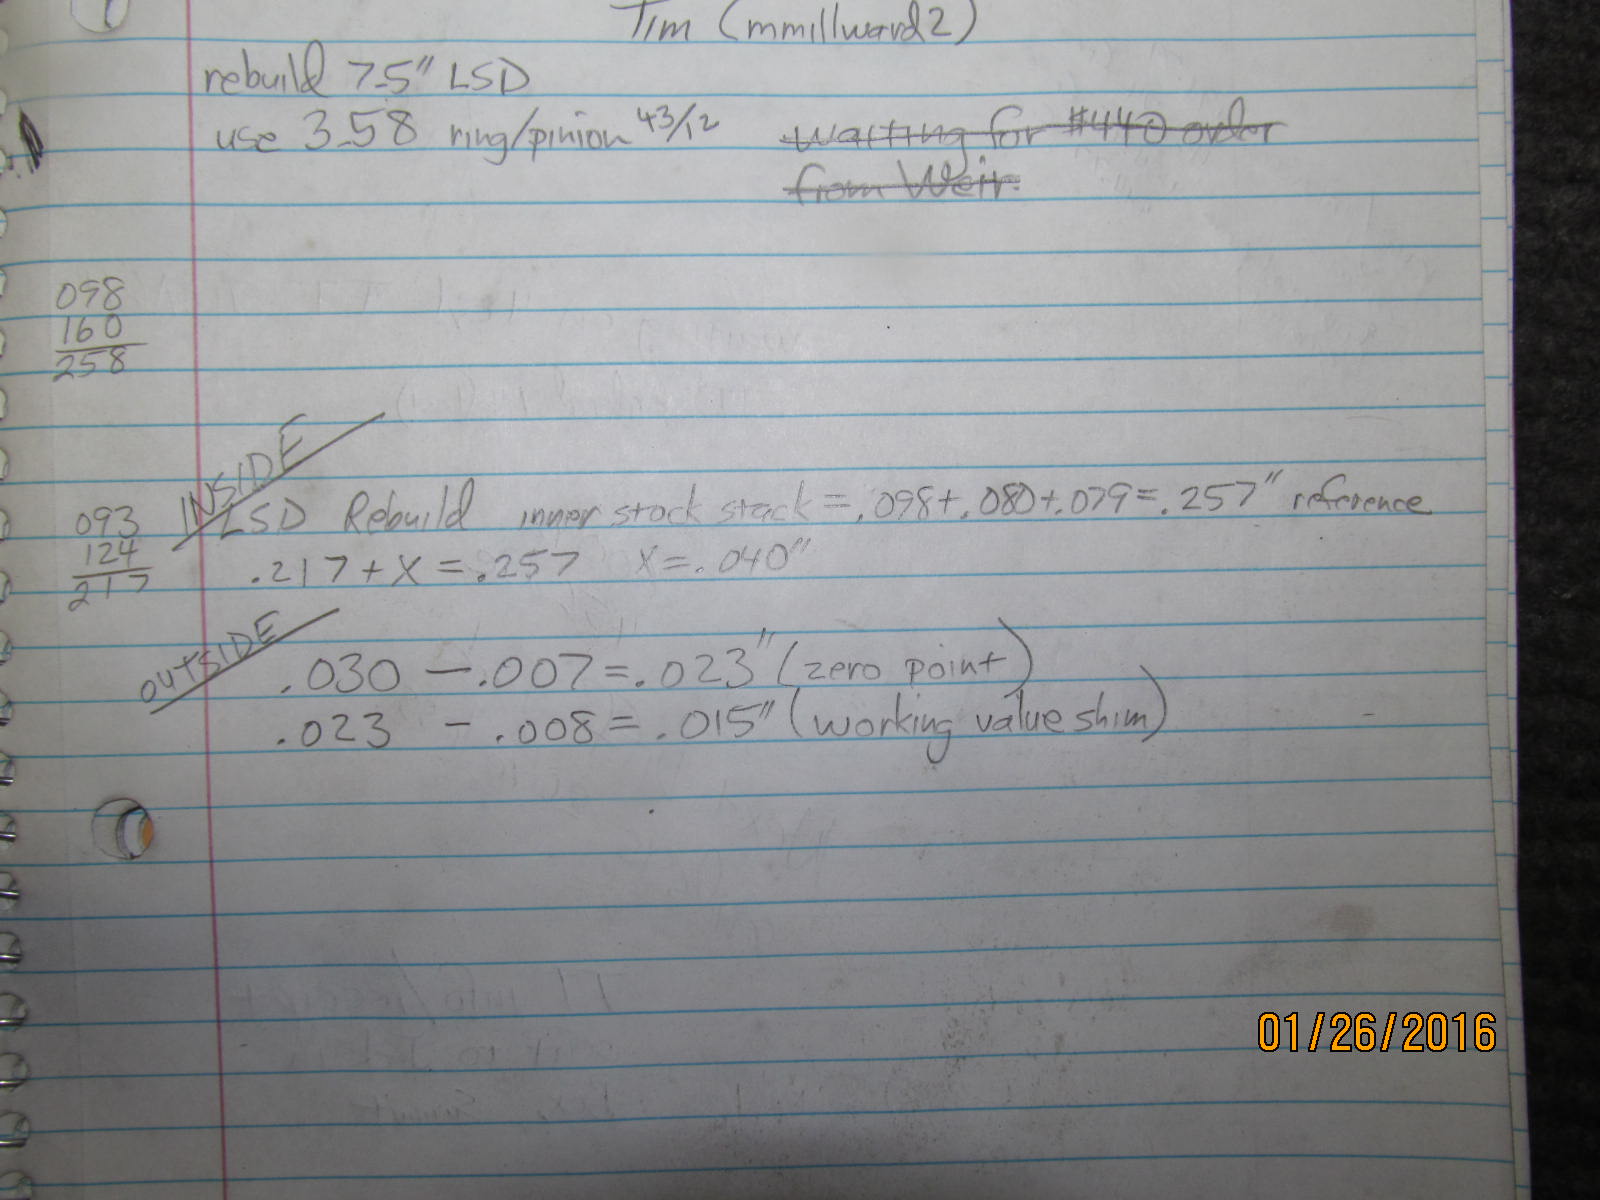 Tim (mmillward2)
rebuild 7.5" LSD
use 3.58 ring/pinion 43/12
waiting for #440 order
from Weir.
098
160
258
INSIDE
LSD Rebuild inner stock stack = .098+.080+.079=.257" reference
093
124
217
.217 + X = .257 X = .040"
OUTSIDE
.030 - .007 = .023" (zero point)
.023 - .008 = .015" (working value shim)
01/26/2016